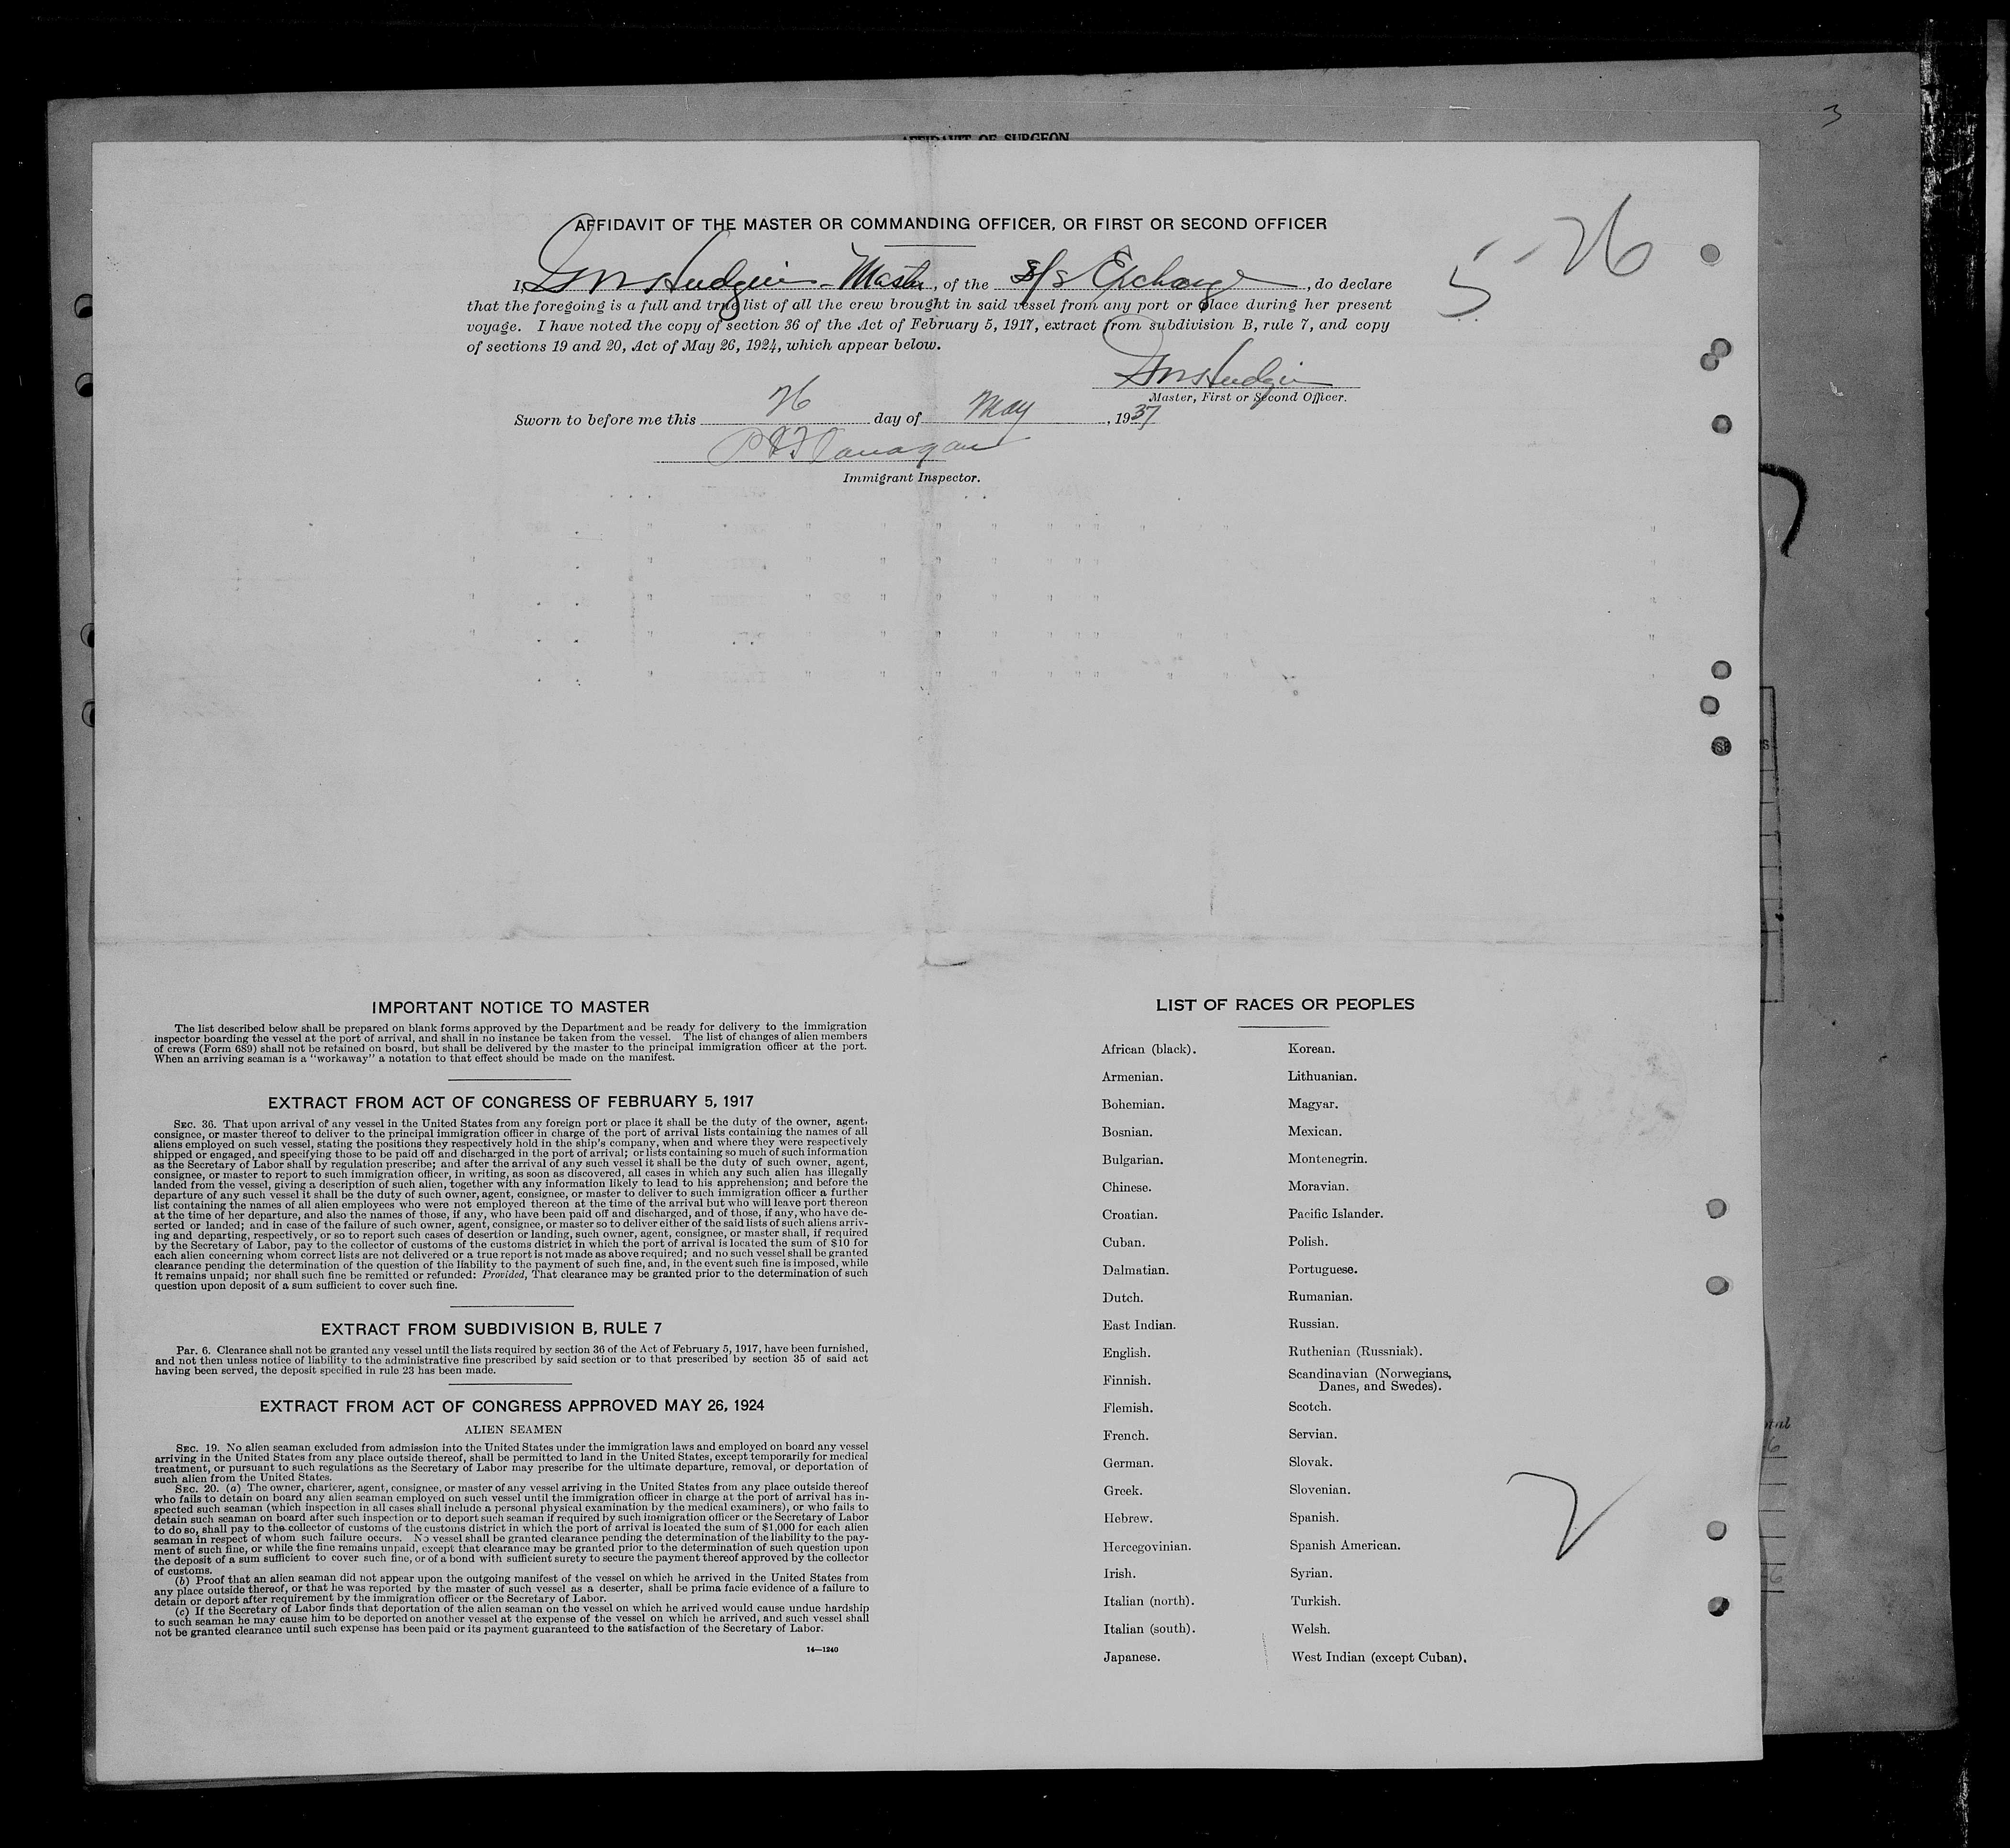 3
AFFIDAVIT OF SURGEON
AFFIDAVIT OF THE MASTER OR COMMANDING OFFICER, OR FIRST OR SECOND OFFICER
5-26
I, Hudgins - Master, of the S/S Exchange, do declare
that the foregoing is a full and true list of all the crew brought in said vessel from any port or place during her present
voyage. I have noted the copy of section 36 of the Act of February 5, 1917, extract from subdivision B, rule 7, and copy
of sections 19 and 20, Act of May 26, 1924, which appear below.
Hudgins
Master, First or Second Officer.
Sworn to before me this 26 day of May, 1937
Flanagan
Immigrant Inspector.
IMPORTANT NOTICE TO MASTER
The list described below shall be prepared on blank forms approved by the Department and be ready for delivery to the immigration
inspector boarding the vessel at the port of arrival, and shall in no instance be taken from the vessel. The list of changes of alien members
of crews (Form 689) shall not be retained on board, but shall be delivered by the master to the principal immigration officer at the port.
When an arriving seaman is a "workaway" a notation to that effect should be made on the manifest.
EXTRACT FROM ACT OF CONGRESS OF FEBRUARY 5, 1917
SEC. 36. That upon arrival of any vessel in the United States from any foreign port or place it shall be the duty of the owner, agent,
consignee, or master thereof to deliver to the principal immigration officer in charge of the port of arrival lists containing the names of all
aliens employed on such vessel, stating the positions they respectively hold in the ship's company, when and where they were respectively
shipped or engaged, and specifying those to be paid off and discharged in the port of arrival; or lists containing so much of such information
as the Secretary of Labor shall by regulation prescribe; and after the arrival of any such vessel it shall be the duty of such owner, agent,
consignee, or master to report to such immigration officer, in writing, as soon as discovered, all cases in which any such alien has illegally
landed from the vessel, giving a description of such alien, together with any information likely to lead to his apprehension; and before the
departure of any such vessel it shall be the duty of such owner, agent, consignee, or master to deliver to such immigration officer a further
list containing the names of all alien employees who were not employed thereon at the time of the arrival but who will leave port thereon
at the time of her departure, and also the names of those, if any, who have been paid off and discharged, and of those, if any, who have de-
serted or landed; and in case of the failure of such owner, agent, consignee, or master so to deliver either of the said lists of such aliens arriv-
ing and departing, respectively, or so to report such cases of desertion or landing, such owner, agent, consignee, or master shall, if required
by the Secretary of Labor, pay to the collector of customs of the customs district in which the port of arrival is located the sum of $10 for
each alien concerning whom correct lists are not delivered or a true report is not made as above required; and no such vessel shall be granted
clearance pending the determination of the question of the liability to the payment of such fine, and, in the event such fine is imposed, while
it remains unpaid; nor shall such fine be remitted or refunded: Provided, That clearance may be granted prior to the determination of such
question upon deposit of a sum sufficient to cover such fine.
EXTRACT FROM SUBDIVISION B, RULE 7
Par. 6. Clearance shall not be granted any vessel until the lists required by section 36 of the Act of February 5, 1917, have been furnished,
and not then unless notice of liability to the administrative fine prescribed by said section or to that prescribed by section 35 of said act
having been served, the deposit specified in rule 23 has been made.
EXTRACT FROM ACT OF CONGRESS APPROVED MAY 26, 1924
ALIEN SEAMEN
SEC. 19. No alien seaman excluded from admission into the United States under the immigration laws and employed on board any vessel
arriving in the United States from any place outside thereof, shall be permitted to land in the United States, except temporarily for medical
treatment, or pursuant to such regulations as the Secretary of Labor may prescribe for the ultimate departure, removal, or deportation of
such alien from the United States.
SEC. 20. (a) The owner, charterer, agent, consignee, or master of any vessel arriving in the United States from any place outside thereof
who fails to detain on board any alien seaman employed on such vessel until the immigration officer in charge at the port of arrival has in-
spected such seaman (which inspection in all cases shall include a personal physical examination by the medical examiners), or who fails to
detain such seaman on board after such inspection or to deport such seaman if required by such immigration officer or the Secretary of Labor
to do so, shall pay to the collector of customs of the customs district in which the port of arrival is located the sum of $1,000 for each alien
seaman in respect of whom such failure occurs. No vessel shall be granted clearance pending the determination of the liability to the pay-
ment of such fine, or while the fine remains unpaid, except that clearance may be granted prior to the determination of such question upon
the deposit of a sum sufficient to cover such fine, or of a bond with sufficient surety to secure the payment thereof approved by the collector
of customs.
(b) Proof that an alien seaman did not appear upon the outgoing manifest of the vessel on which he arrived in the United States from
any place outside thereof, or that he was reported by the master of such vessel as a deserter, shall be prima facie evidence of a failure to
detain or deport after requirement by the immigration officer or the Secretary of Labor.
(c) If the Secretary of Labor finds that deportation of the alien seaman on the vessel on which he arrived would cause undue hardship
to such seaman he may cause him to be deported on another vessel at the expense of the vessel on which he arrived, and such vessel shall
not be granted clearance until such expense has been paid or its payment guaranteed to the satisfaction of the Secretary of Labor.
14—1240
LIST OF RACES OR PEOPLES
African (black). Korean.
Armenian. Lithuanian.
Bohemian. Magyar.
Bosnian. Mexican.
Bulgarian. Montenegrin.
Chinese. Moravian.
Croatian. Pacific Islander.
Cuban. Polish.
Dalmatian. Portuguese.
Dutch. Rumanian.
East Indian. Russian.
English. Ruthenian (Russniak).
Finnish. Scandinavian (Norwegians,
Danes, and Swedes).
Flemish. Scotch.
French. Servian.
German. Slovak.
Greek. Slovenian.
Hebrew. Spanish.
Hercegovinian. Spanish American.
Irish. Syrian.
Italian (north). Turkish.
Italian (south). Welsh.
Japanese. West Indian (except Cuban).